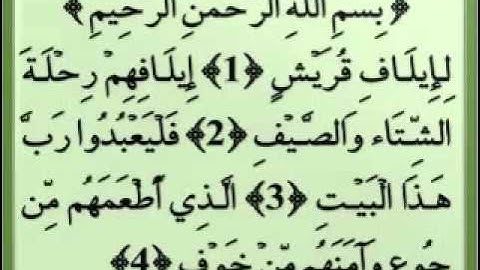 ﴿بِسْمِ اللهِ الرَّحْمَنِ الرَّحِيمِ﴾
لِإِيلَافِ قُرَيْشٍ ﴿1﴾ إِيلَافِهِمْ رِحْلَةَ
الشِّتَاء وَالصَّيْفِ ﴿2﴾ فَلْيَعْبُدُوا رَبَّ
هَذَا الْبَيْتِ ﴿3﴾ الَّذِي أَطْعَمَهُم مِّن
جُوعٍ وَآمَنَهُم مِّنْ خَوْفٍ ﴿4﴾